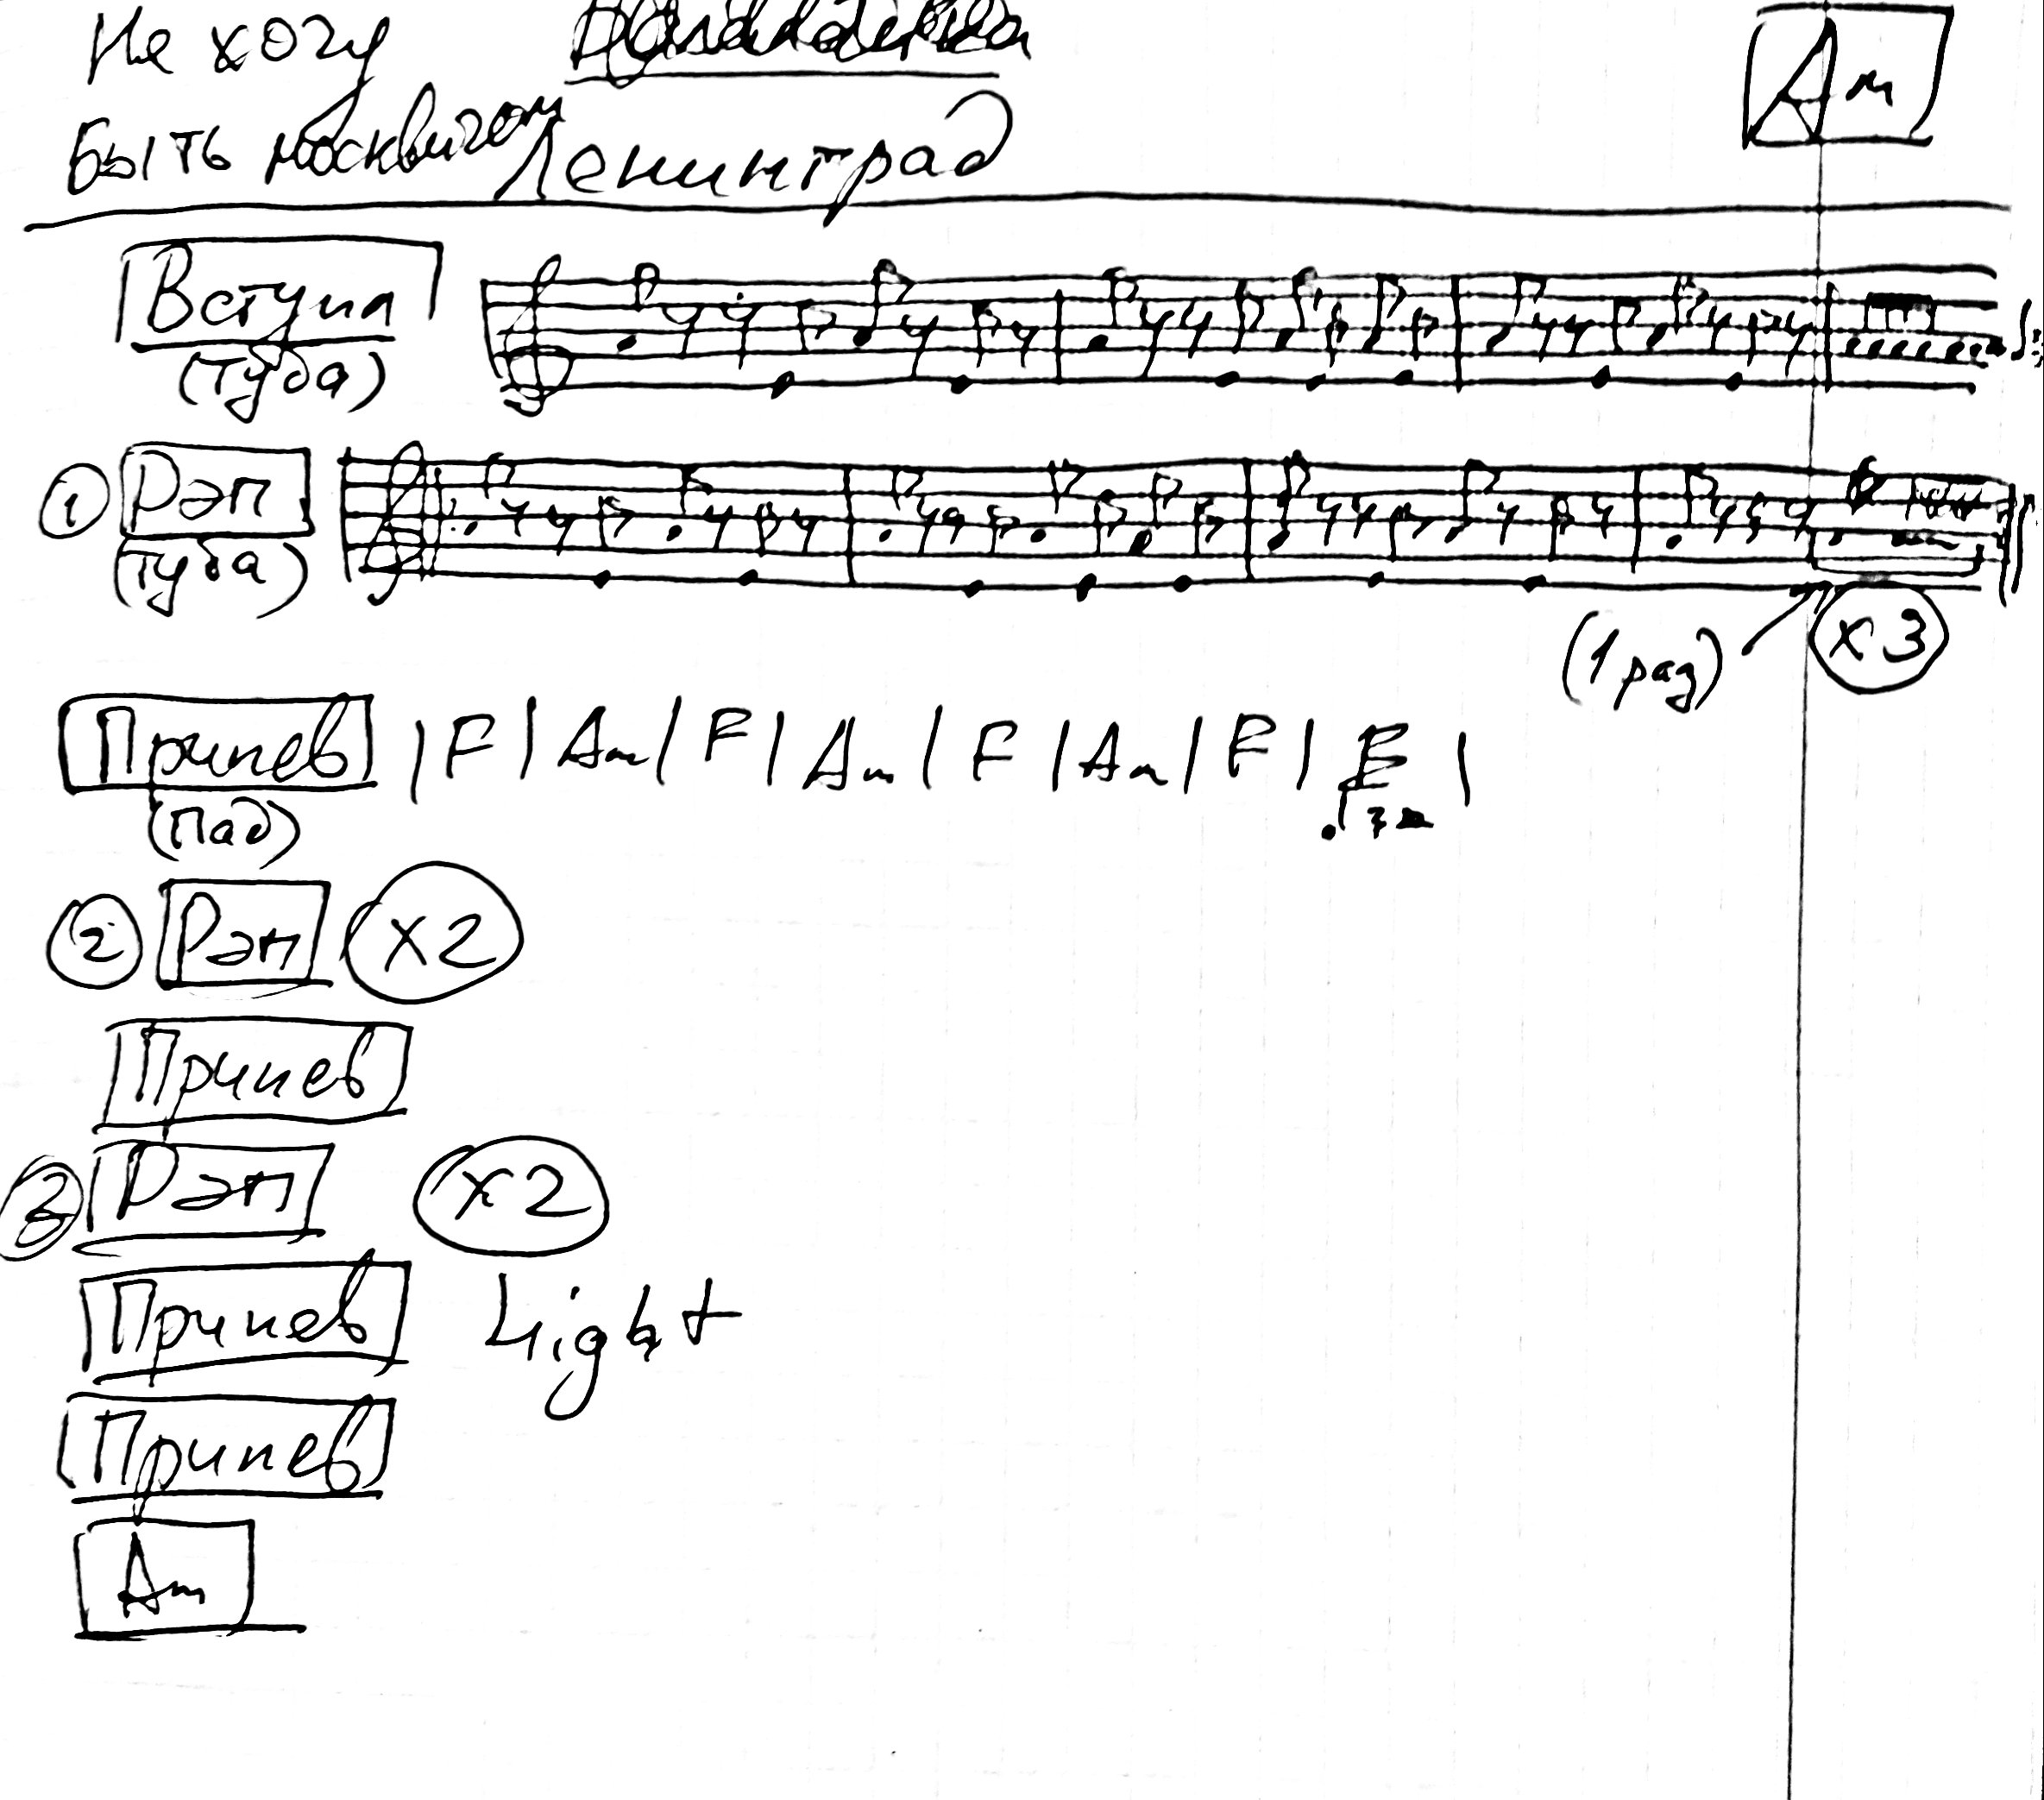 Не хочу
Am
быть москвичом Ленинград
Вступл
(туба)
1 Рэп
(туба)
(1 раз) x3
Припев | F | Am | F | Am | F | Am | F | E |
(пад)
2 Рэп x2
Припев
3 Рэп x2
Припев Light
Припев
Am